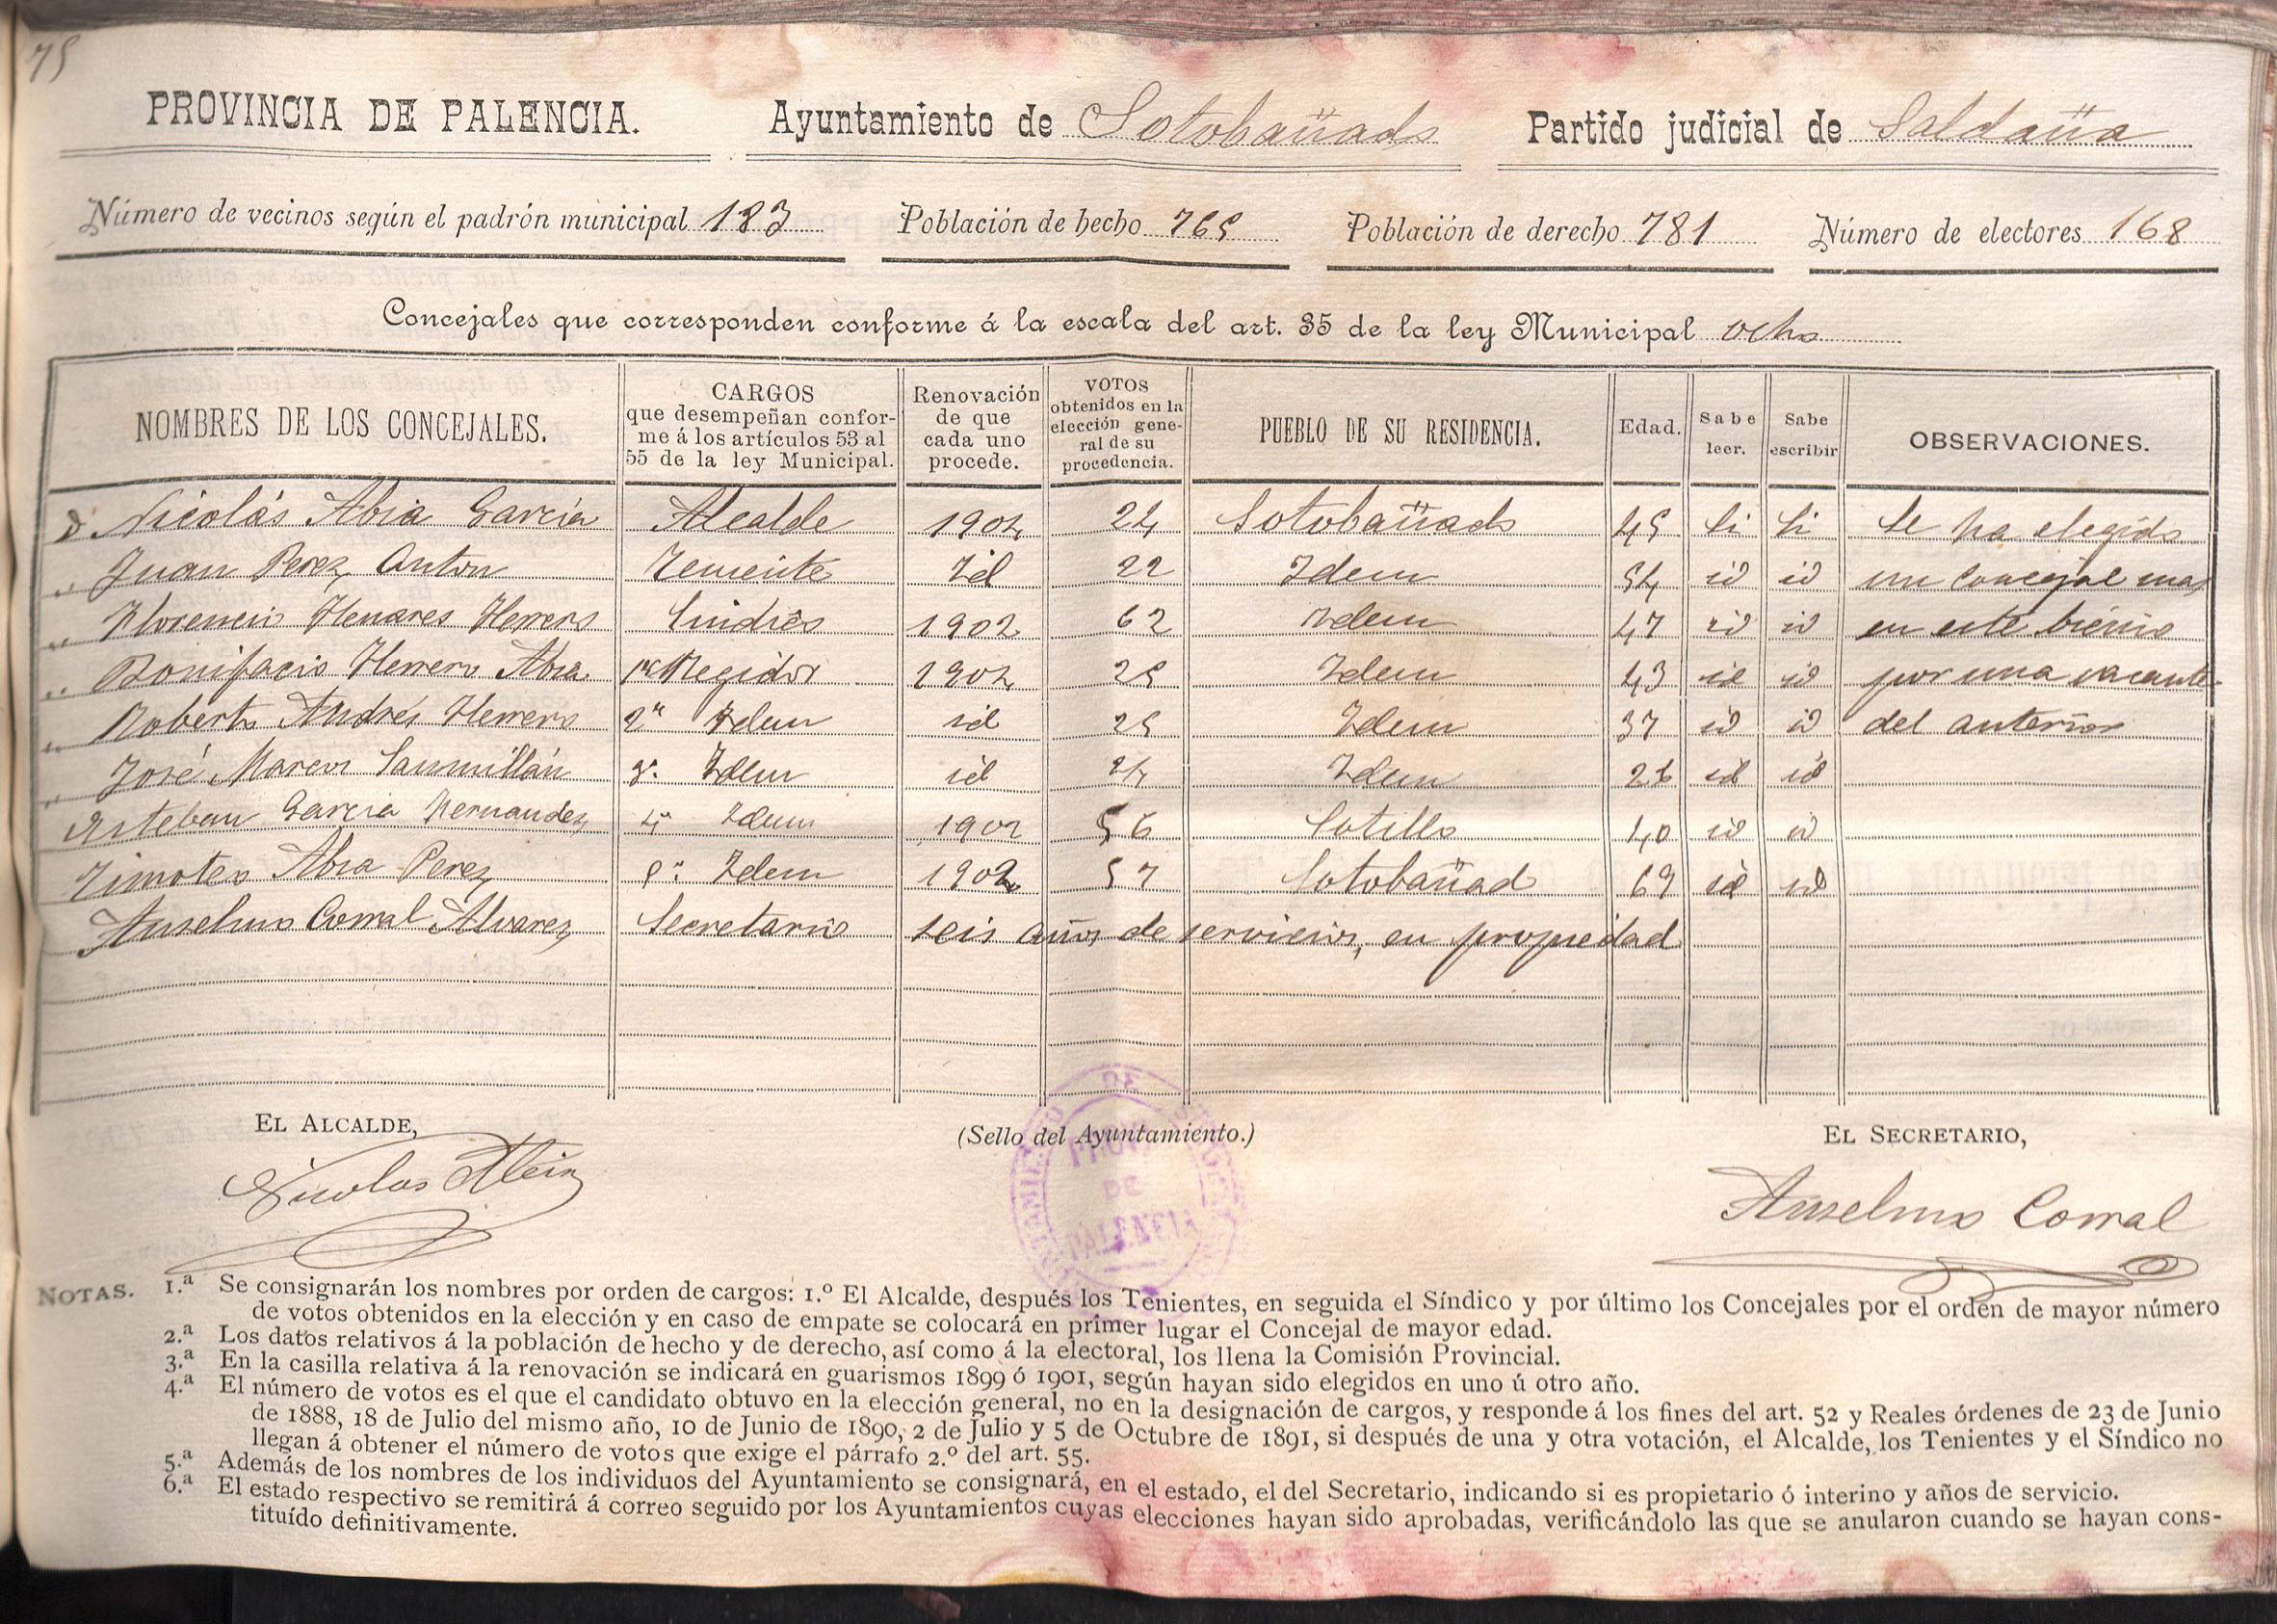 75
PROVINCIA DE PALENCIA. Ayuntamiento de Sotobañado Partido judicial de Saldaña
Número de vecinos según el padrón municipal 183 Población de hecho 765 Población de derecho 781 Número de electores 168
Concejales que corresponden conforme á la escala del art. 35 de la ley Municipal ocho
NOMBRES DE LOS CONCEJALES. CARGOS que desempeñan confor- me á los artículos 53 al 55 de la ley Municipal. Renovación de que cada uno procede. VOTOS obtenidos en la elección gene- ral de su procedencia. PUEBLO DE SU RESIDENCIA. Edad. Sabe leer. Sabe escribir OBSERVACIONES.
D. Nicolás Abia García Alcalde 1904 24 Sotobañado 45 Si Si Se ha elegido
" Juan Perez Anton Teniente Id 22 Idem 54 id id un concejal mas
" Florencio Henares Herrero Sindico 1902 62 Idem 47 id id en este bienio
" Bonifacio Herrero Abia 1er Regidor 1904 25 Idem 43 id id por una vacante
" Roberto Andrés Herrero 2º Idem id 25 Idem 37 id id del anterior
" José Marcos Sanmillán 3º Idem id 24 Idem 26 id id
Esteban García Hernandez 4º Idem 1902 56 Sotillo 40 id id
Timoteo Abia Perez 5º Idem 1902 57 Sotobañad 69 id id
Anselmo Corral Alvarez Secretario seis años de servicios, en propiedad
EL ALCALDE, (Sello del Ayuntamiento.) EL SECRETARIO,
DE
PROVª
DE
PALENCIA
Nicolas Abia Anselmo Corral
NOTAS. 1.ª Se consignarán los nombres por orden de cargos: 1.º El Alcalde, después los Tenientes, en seguida el Síndico y por último los Concejales por el orden de mayor número
de votos obtenidos en la elección y en caso de empate se colocará en primer lugar el Concejal de mayor edad.
2.ª Los datos relativos á la población de hecho y de derecho, así como á la electoral, los llena la Comisión Provincial.
3.ª En la casilla relativa á la renovación se indicará en guarismos 1899 ó 1901, según hayan sido elegidos en uno ú otro año.
4.ª El número de votos es el que el candidato obtuvo en la elección general, no en la designación de cargos, y responde á los fines del art. 52 y Reales órdenes de 23 de Junio
de 1888, 18 de Julio del mismo año, 10 de Junio de 1890, 2 de Julio y 5 de Octubre de 1891, si después de una y otra votación, el Alcalde, los Tenientes y el Síndico no
llegan á obtener el número de votos que exige el párrafo 2.º del art. 55.
5.ª Además de los nombres de los individuos del Ayuntamiento se consignará, en el estado, el del Secretario, indicando si es propietario ó interino y años de servicio.
6.ª El estado respectivo se remitirá á correo seguido por los Ayuntamientos cuyas elecciones hayan sido aprobadas, verificándolo las que se anularon cuando se hayan cons-
tituído definitivamente.